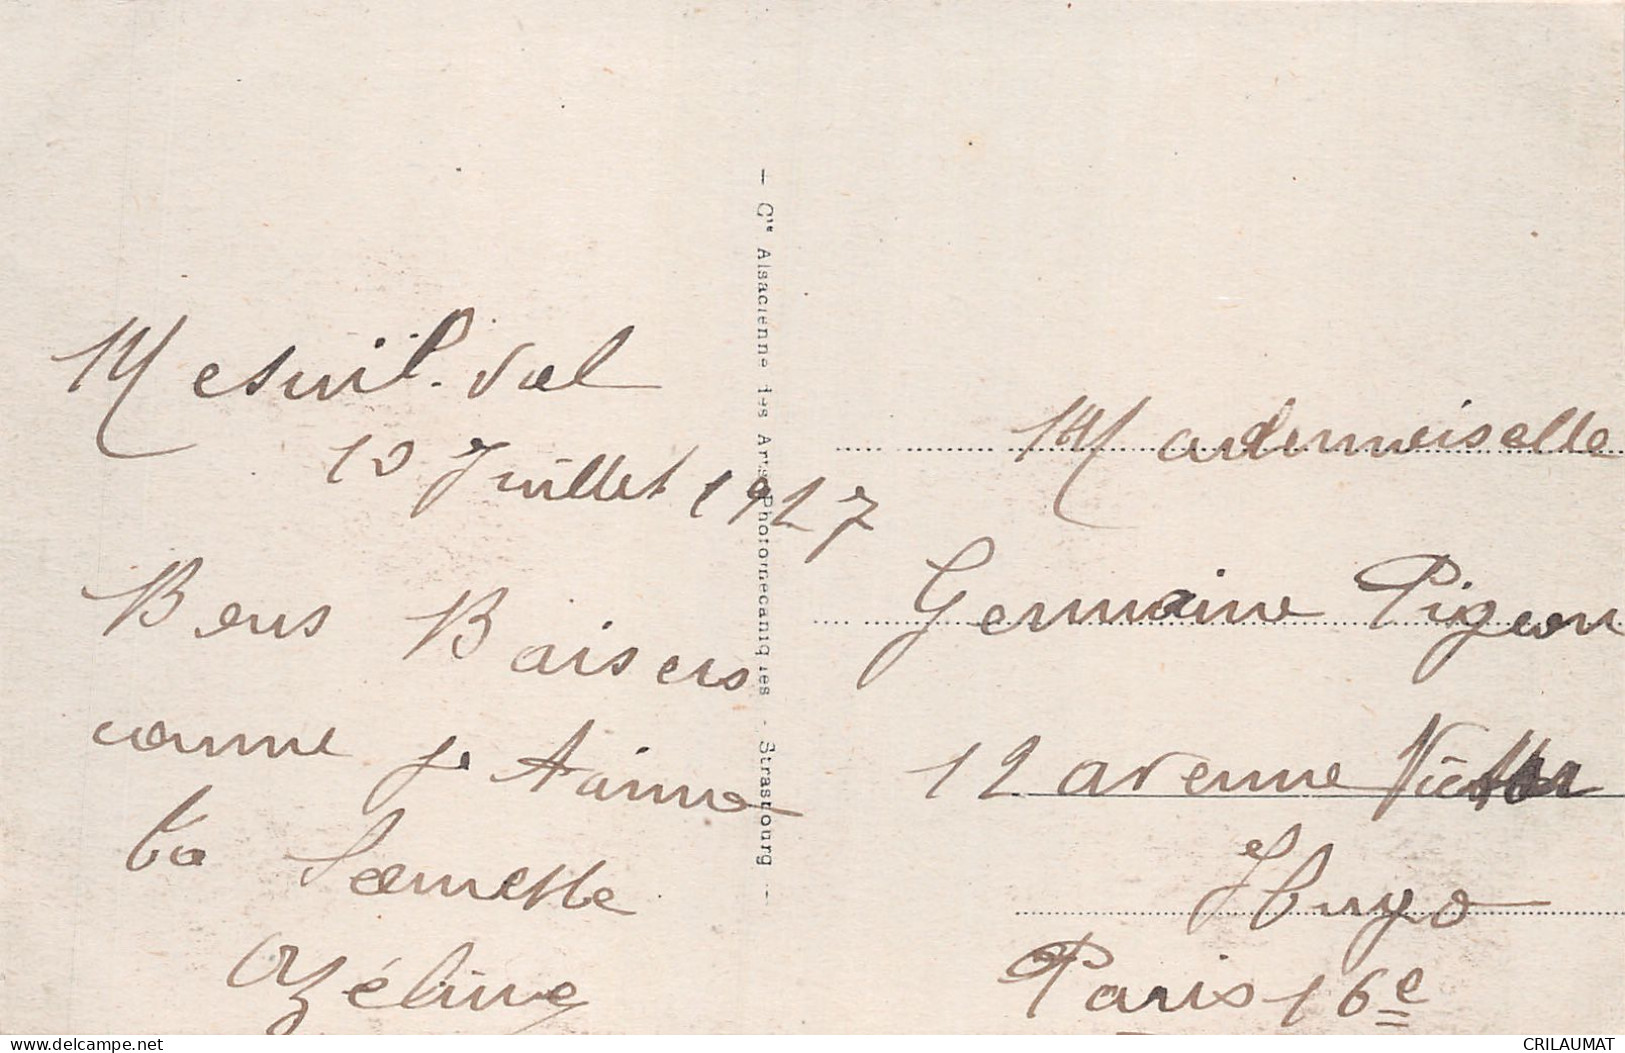 Mesnil-Val
10 Juillet 1927
Bons Baisers
comme je t'aime
ta
Azéline
— Cie Alsacienne des Arts Photomécaniques - Strasbourg —
Mademoiselle
Germaine Pigeon
12 avenue Victor
Hugo
Paris 16e
www.delcampe.net
CRILAUMAT